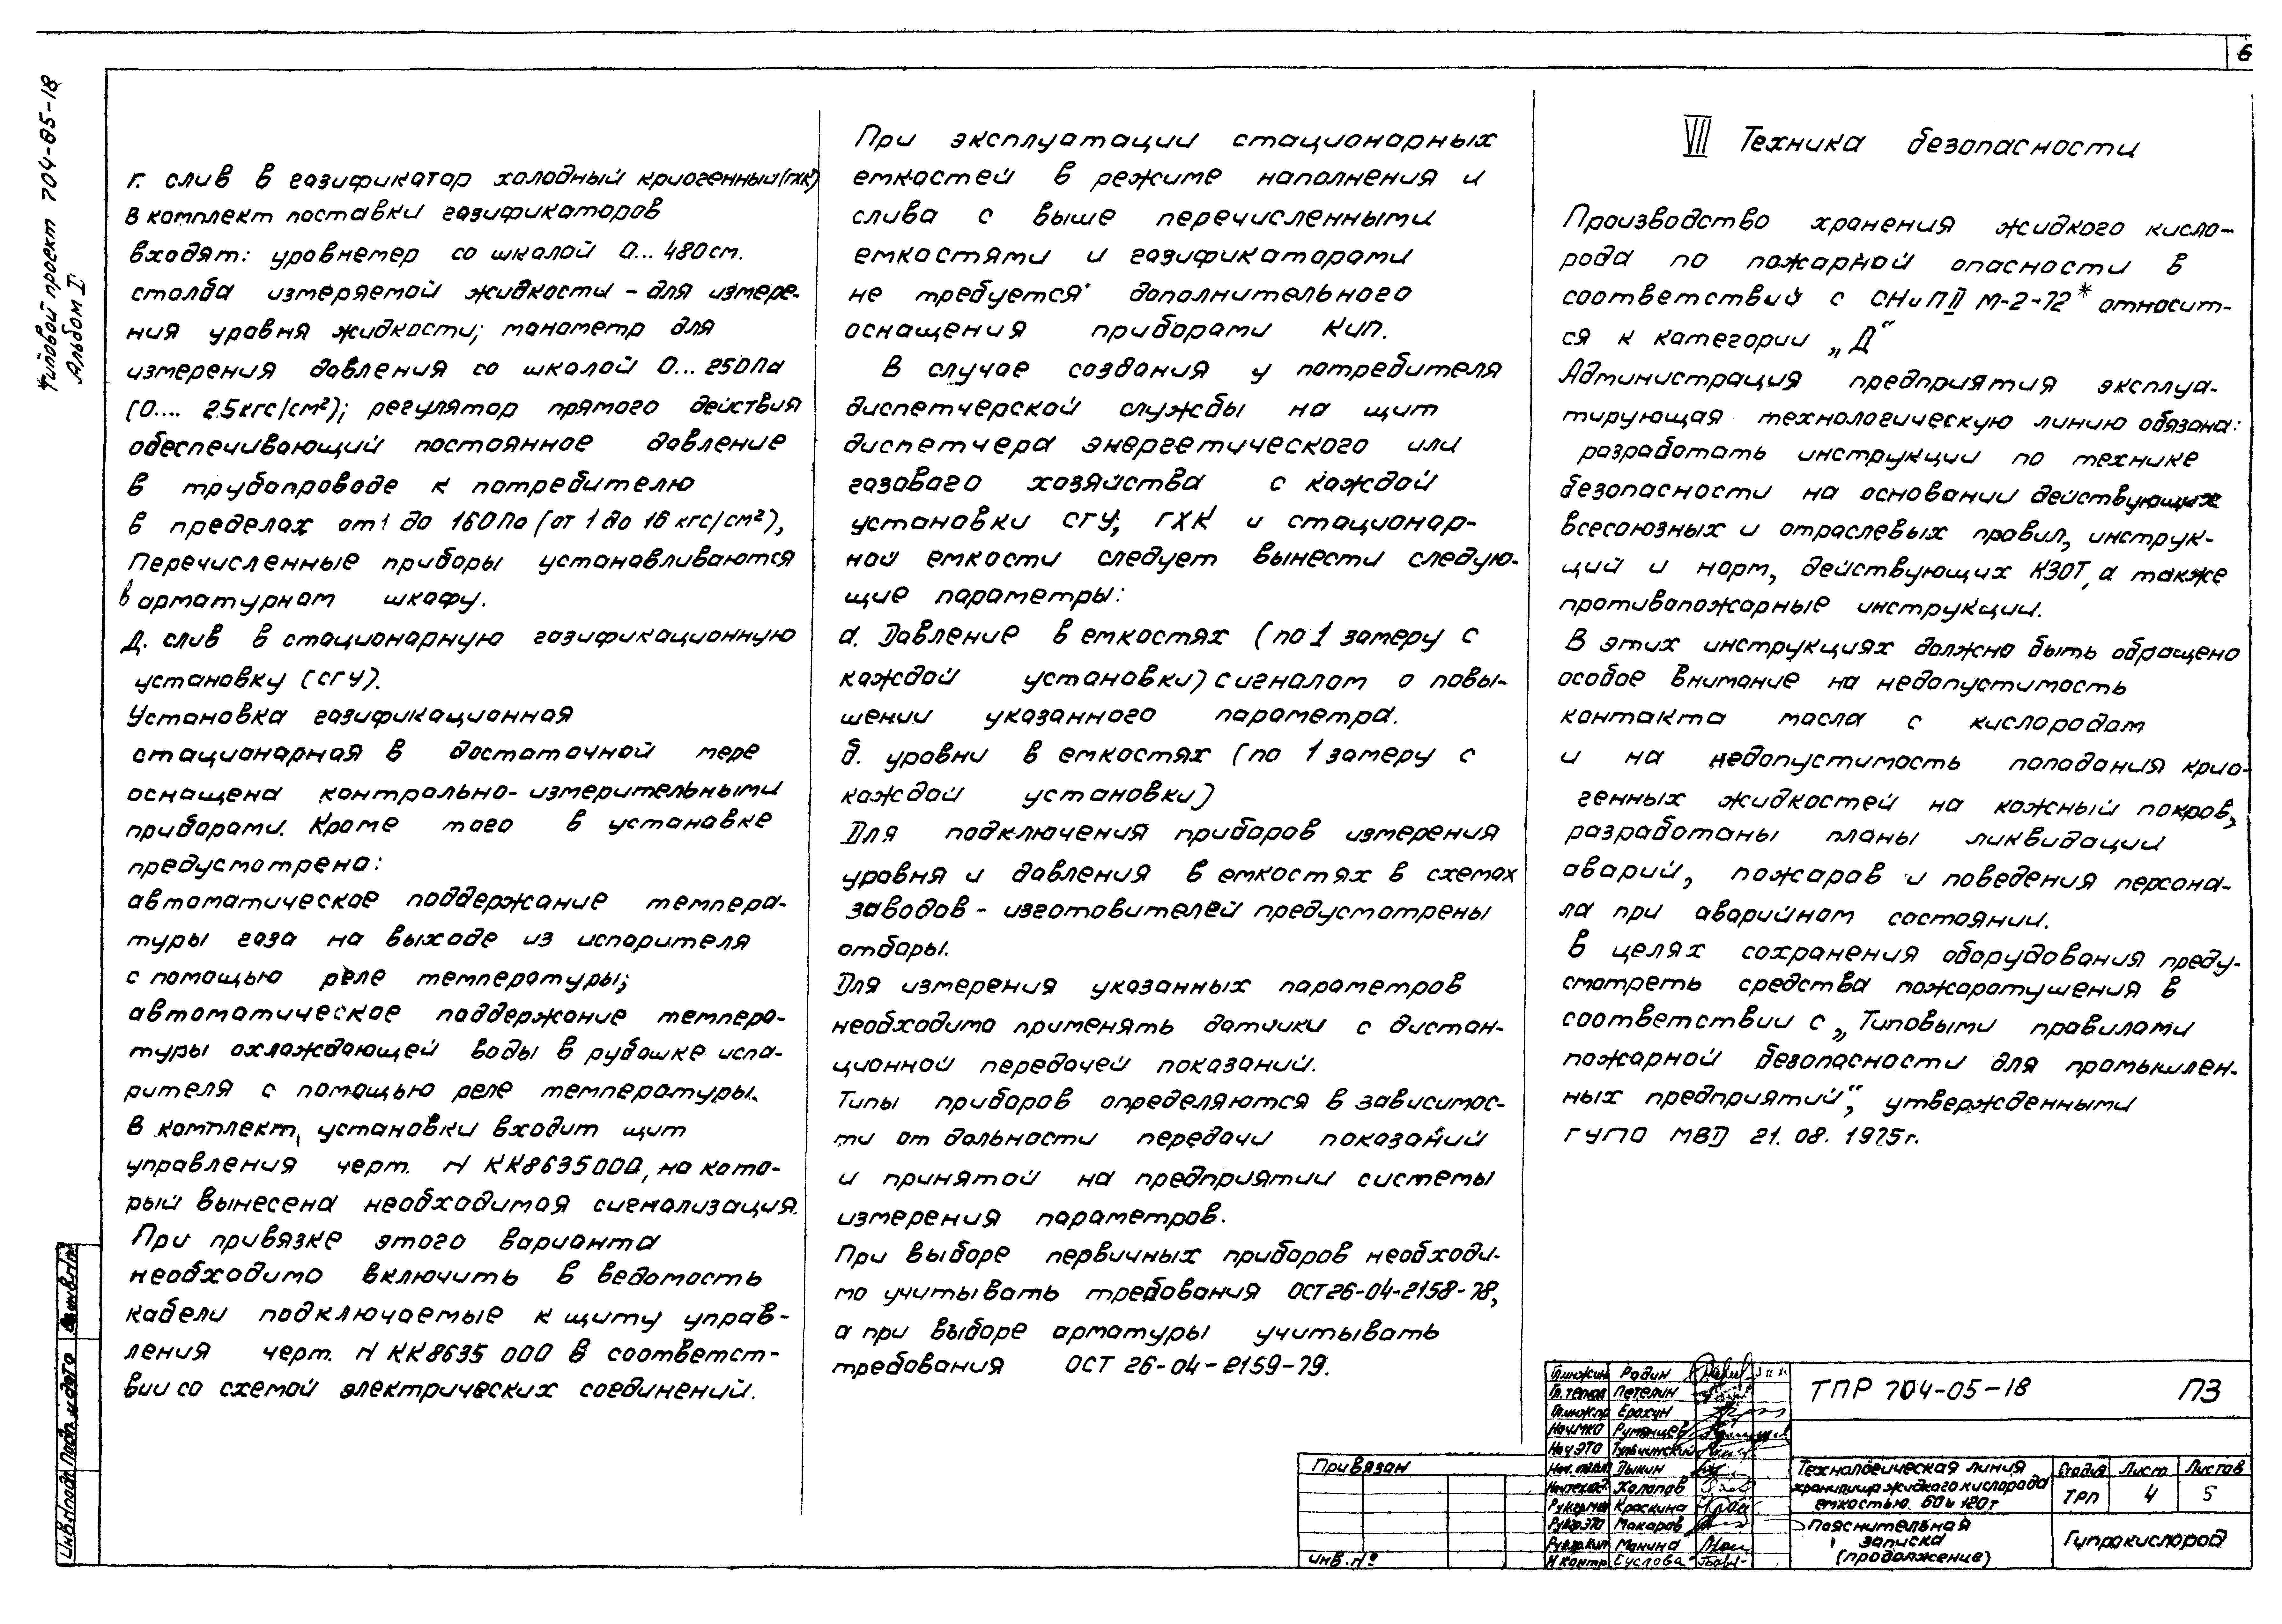 6
Типовой проект 704-05-18
Альбом I
г. слив в газификатор холодный криогенный (ГХК)
В комплект поставки газификаторов
входят: уровнемер со шкалой 0... 480 см.
столба измеряемой жидкости – для измере-
ния уровня жидкости; манометр для
измерения давления со шкалой 0... 250 Па
(0.... 25 кгс/см²); регулятор прямого действия
обеспечивающий постоянное давление
в трубопроводе к потребителю
в пределах от 1 до 160 Па (от 1 до 16 кгс/см²),
Перечисленные приборы устанавливаются
в арматурном шкафу.
Д. слив в стационарную газификационную
установку (СГУ).
Установка газификационная
стационарная в достаточной мере
оснащена контрольно-измерительными
приборами. Кроме того в установке
предусмотрено:
автоматическое поддержание темпера-
туры газа на выходе из испарителя
с помощью реле температуры;
автоматическое поддержание темпера-
туры охлаждающей воды в рубашке испа-
рителя с помощью реле температуры.
В комплект установки входит щит
управления черт. N КК8635000, на кото-
рый вынесена необходимая сигнализация.
При привязке этого варианта
необходимо включить в ведомость
кабели подключаемые к щиту управ-
ления черт. N КК8635 000 в соответст-
вии со схемой электрических соединений.
При эксплуатации стационарных
емкостей в режиме наполнения и
слива с выше перечисленными
емкостями и газификаторами
не требуется дополнительного
оснащения приборами КИП.
В случае создания у потребителя
диспетчерской службы на щит
диспетчера энергетического или
газового хозяйства с каждой
установки СГУ, ГХК и стационар-
ной емкости следует вынести следую-
щие параметры:
а. Давление в емкостях (по 1 замеру с
каждой установки) сигналом о повы-
шении указанного параметра.
б. уровни в емкостях (по 1 замеру с
каждой установки)
Для подключения приборов измерения
уровня и давления в емкостях в схемах
заводов – изготовителей предусмотрены
отборы.
Для измерения указанных параметров
необходимо применять датчики с дистан-
ционной передачей показаний.
Типы приборов определяются в зависимос-
ти от дальности передачи показаний
и принятой на предприятии системы
измерения параметров.
При выборе первичных приборов необходи-
мо учитывать требования ОСТ 26-04-2158-78,
а при выборе арматуры учитывать
требования ОСТ 26-04-2159-79.
VII Техника безопасности
Производство хранения жидкого кисло-
рода по пожарной опасности в
соответствий с СНиП II М-2-72* относит-
ся к категории „Д“
Администрация предприятия эксплуа-
тирующая технологическую линию обязана:
разработать инструкции по технике
безопасности на основании действующих
всесоюзных и отраслевых правил, инструк-
ций и норм, действующих КЗОТ, а также
противопожарные инструкции.
В этих инструкциях должно быть обращено
особое внимание на недопустимость
контакта масла с кислородом
и на недопустимость попадания крио-
генных жидкостей на кожный покров,
разработаны планы ликвидации
аварий, пожаров и поведения персона-
ла при аварийном состоянии.
В целях сохранения оборудования преду-
смотреть средства пожаротушения в
соответствии с „Типовыми правилами
пожарной безопасности для промышлен-
ных предприятий“, утвержденными
ГУПО МВД 21. 08. 1975 г.
Инв.Nподл. Подп. и дата
Привязан
Инв. №
Гл.инж.ин Родин
Гл.технол Петелин
Гл.инж.пр Ерохин
Нач.МКО Румянцев
Нач ЭТО Тульчинский
Дыкин
Холопов
Краскина
Рук.гр.ЭТО Макаров
Рук.гр.Кип Манина
Н.контр Суслова
ТПР 704-05-18 ПЗ
Технологическая линия
хранилища жидкого кислорода
емкостью 60 и 120 т
Стадия Лист Листов
ТРП 4 5
Пояснительная
записка
(продолжение)
Гипрокислород